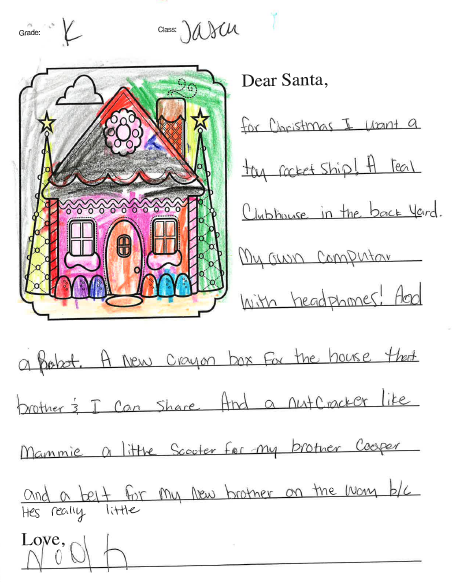 Grade: K Class: Jasen
Dear Santa,
for Christmas I want a
toy rocket ship! A real
Clubhouse in the back yard.
My own computar
with headphones! And
a Robot. A new crayon box for the house that
brother & I can share And a nutcracker like
Mammie a little Scooter for my brother Cooper
and a belt for my new brother on the way b/c
Hes really little
Love,
Noah